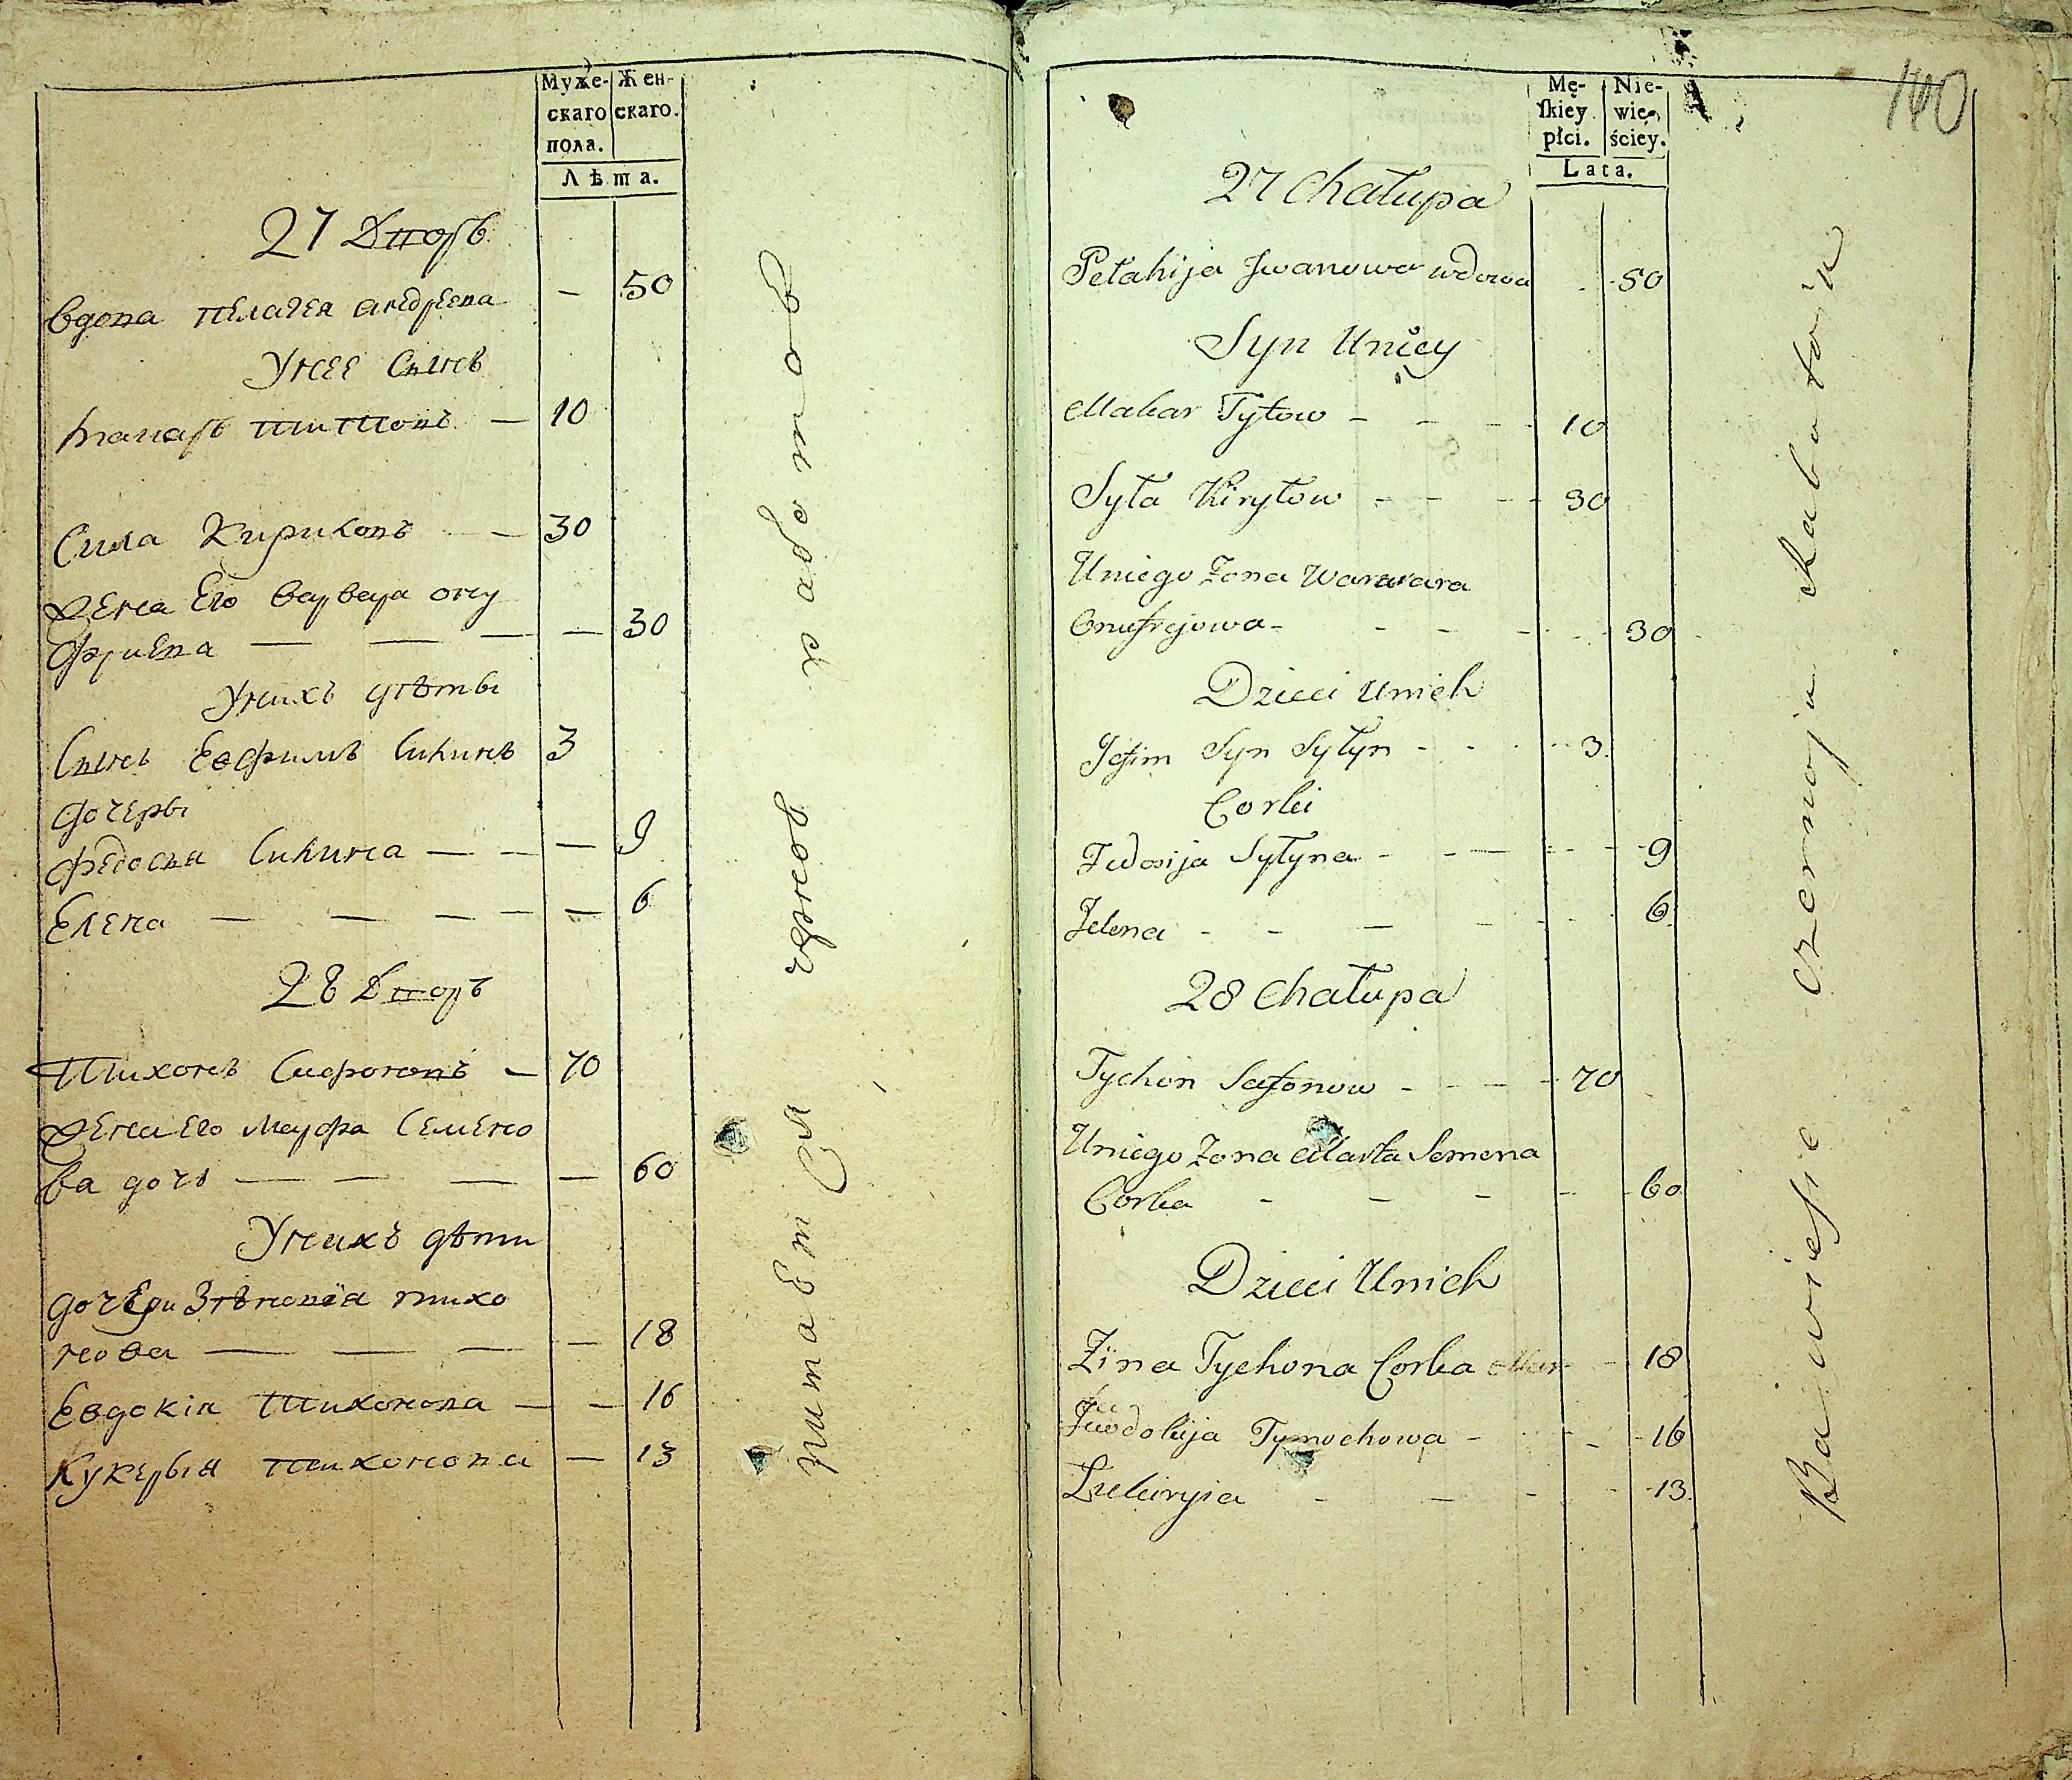 Муже-
скаго
пола.
Жен-
скаго.
Лѣта.
27 Дворъ
вдова пелагея андреева — 50
Унее Сынъ
макаръ титовъ — 10
Сила Кириловъ — 30
Жена Его варвара ону
фриева — — — — 30
Унихъ дѣты
Сынъ Евфимъ Силинъ 3
дочеры
федосья Силина — — — 9
Елена — — — — — 6
28 Дворъ
Тихонъ Сафоновъ — 70
Жена Его Марфа Семено
ва дочь — — — — 60
Унихъ дѣти
дочери Зѣновія тихо
нова — — — — 18
Евдокія Тихонова — — 16
Кукерья тихонова — 13
питаетСя черною работою
140
Mę-
skiey
płci.
Nie-
wie-
ściey.
Lata.
27 Chałupa
Pełahija Jwanowa wdowa 50
Syn Unicy
Makar Tytow - - - 10
Syła Kiryłow - - - 30
Uniego Żona Warwara
Onufrejowa - - - - 30
Dzieci Unich
Jefim Syn Syłyn - - - 3.
Corki
Fedosija Syłyna - - — - - 9
Jelena - - — - - 6.
28 Chałupa
Tychon Safonow - - - - 70
Uniego Żona Marta Semena
Corka - - - - - 60
Dzieci Unich
Zina Tychona Corka Mar- - 18
Jewdokija Tymochowa - - - 16
Łukiryia - - - - - 13.
Bawiesie czernoju Rabotoju